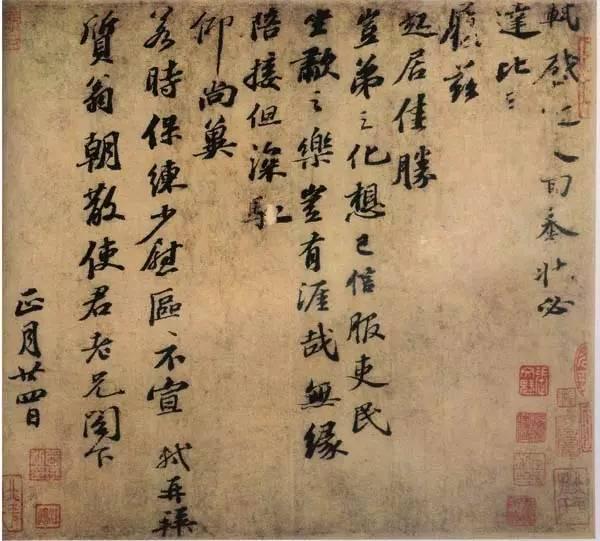 軾啓近人回奉狀必
達比日
履茲
起居佳勝
豈弟之化想已信服吏民
坐嘯之樂豈有涯哉無緣
陪接但深馳
仰尚冀
若時保練少慰區〻不宣 軾再拜
質翁朝散使君老兄閣下
正月廿四日